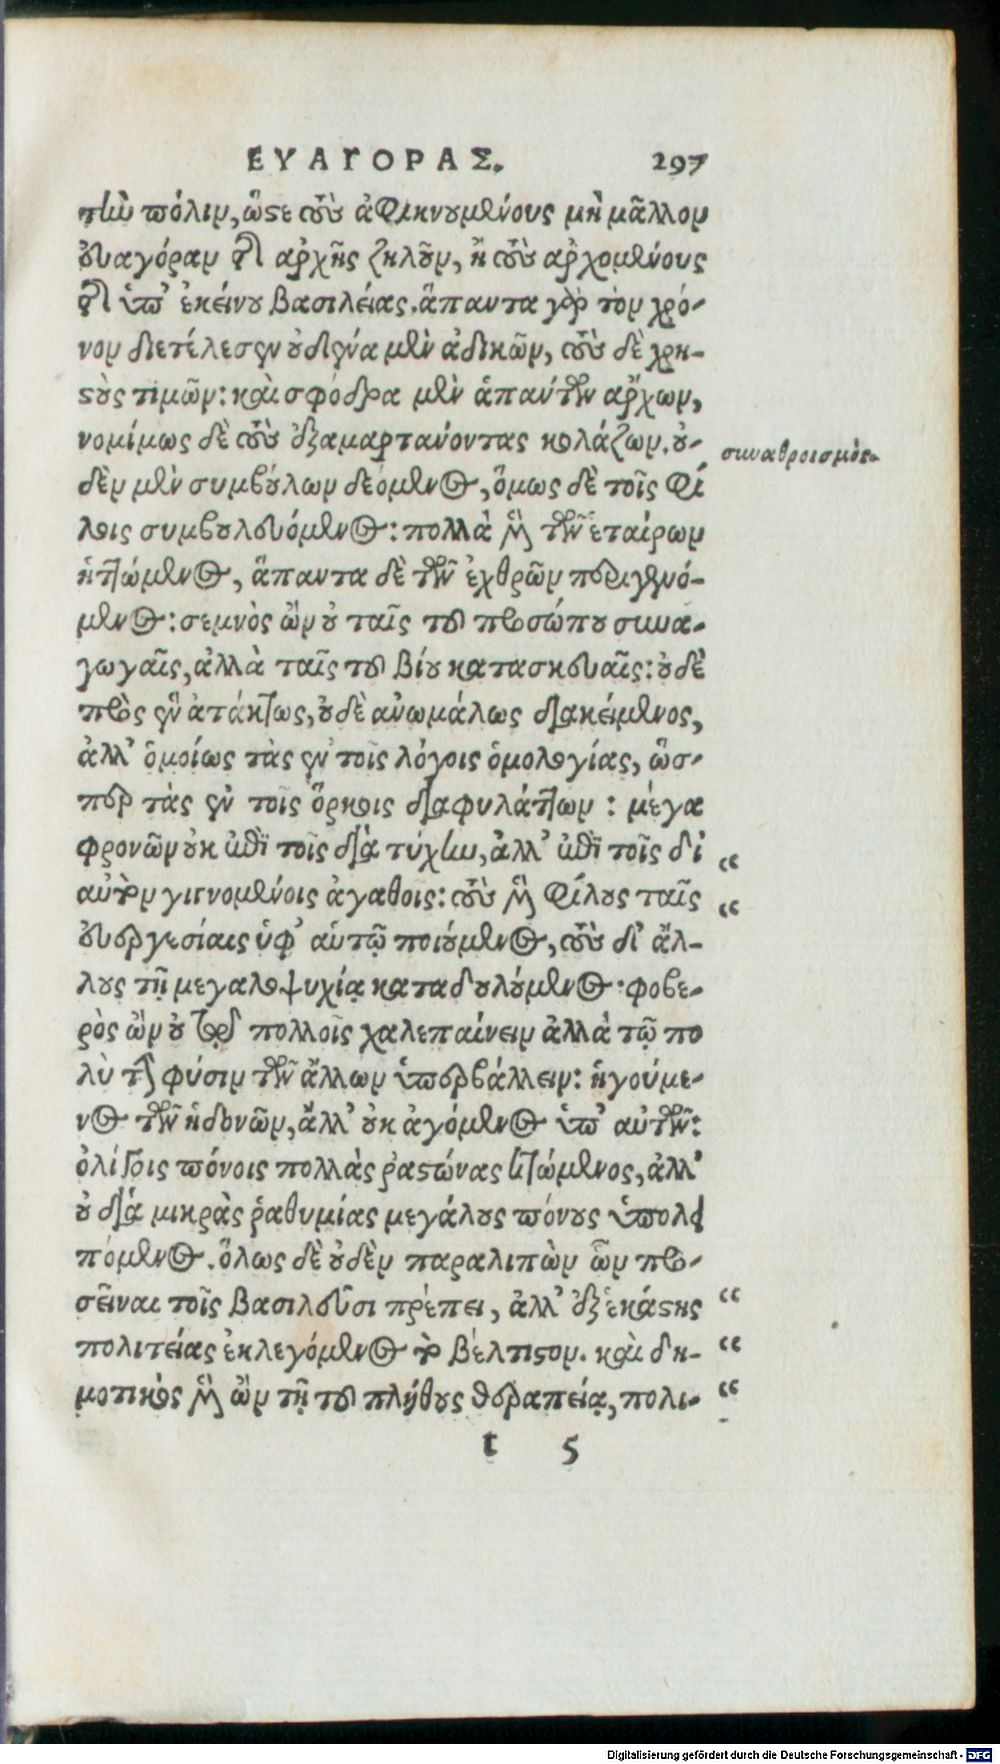 ΕΥΑΓΟΡΑΣ. 297
τὴν πόλιν, ὥστε τοὺς ἀφικνουμένους μὴ μᾶλλον
εὐαγόραν τῆς ἀρχῆς ζηλοῦν, ἢ τοὺς ἀρχομένους
τῆς ὑπ' ἐκείνου βασιλείας. ἅπαντα γὰρ τὸν χρό-
νον διετέλεσεν οὐδένα μὲν ἀδικῶν, τοὺς δὲ χρη-
στοὺς τιμῶν: καὶ σφόδρα μὲν ἁπάντων ἄρχων,
νομίμως δὲ τοὺς ἐξαμαρτάνοντας κολάζων. οὐ-
συναθροισμὸς.
δὲν μὲν συμβούλων δεόμενος, ὅμως δὲ τοῖς φί
λοις συμβουλευόμενος: πολλὰ μὲν τῶν ἑταίρων
ἡττώμενος, ἅπαντα δὲ τῶν ἐχθρῶν περιγενό-
μενος: σεμνὸς ὢν οὐ ταῖς τοῦ προσώπου συνα-
γωγαῖς, ἀλλὰ ταῖς τοῦ βίου κατασκευαῖς: οὐδὲ
πρὸς ἓν ἀτάκτως, οὐδὲ ἀνωμάλως διακείμενος,
ἀλλ' ὁμοίως τὰς ἐν τοῖς λόγοις ὁμολογίας, ὥσ-
περ τὰς ἐν τοῖς ὅρκοις διαφυλάττων: μέγα
φρονῶν οὐκ ἐπὶ τοῖς διὰ τύχην, ἀλλ' ἐπὶ τοῖς δι “
αὑτὸν γιγνομένοις ἀγαθοις: τοὺς μὲν φίλους ταῖς “
εὐεργεσίαις ὑφ' αὑτῷ ποιούμενος, τοὺς δ' ἄλ-
λους τῇ μεγαλοψυχίᾳ καταδουλούμενος. φοβε-
ρὸς ὢν οὐ τῷ πολλοῖς χαλεπαίνειν ἀλλὰ τῷ πο
λὺ τὴν φύσιν τῶν ἄλλων ὑπερβάλλειν: ἡγούμε-
νος τῶν ἡδονῶν, ἀλλ' οὐκ ἀγόμενος ὑπ' αὐτῶν:
ὀλίγοις πόνοις πολλὰς ῥαστώνας κτώμενος, ἀλλ'
οὐ διὰ μικρὰς ῥαθυμίας μεγάλους πόνους ὑπολει
πόμενος. ὅλως δὲ οὐδὲν παραλιπὼν ὧν προ-
σεῖναι τοῖς βασιλεῦσι πρέπει, ἀλλ' ἐξ ἑκάστης “
πολιτείας ἐκλεγόμενος τὸ βέλτιστον. καὶ δη- “
μοτικὸς μὲν ὢν τῇ τοῦ πλήθους θεραπείᾳ, πολι- “
t 5
Digitalisierung gefördert durch die Deutsche Forschungsgemeinschaft - DFG